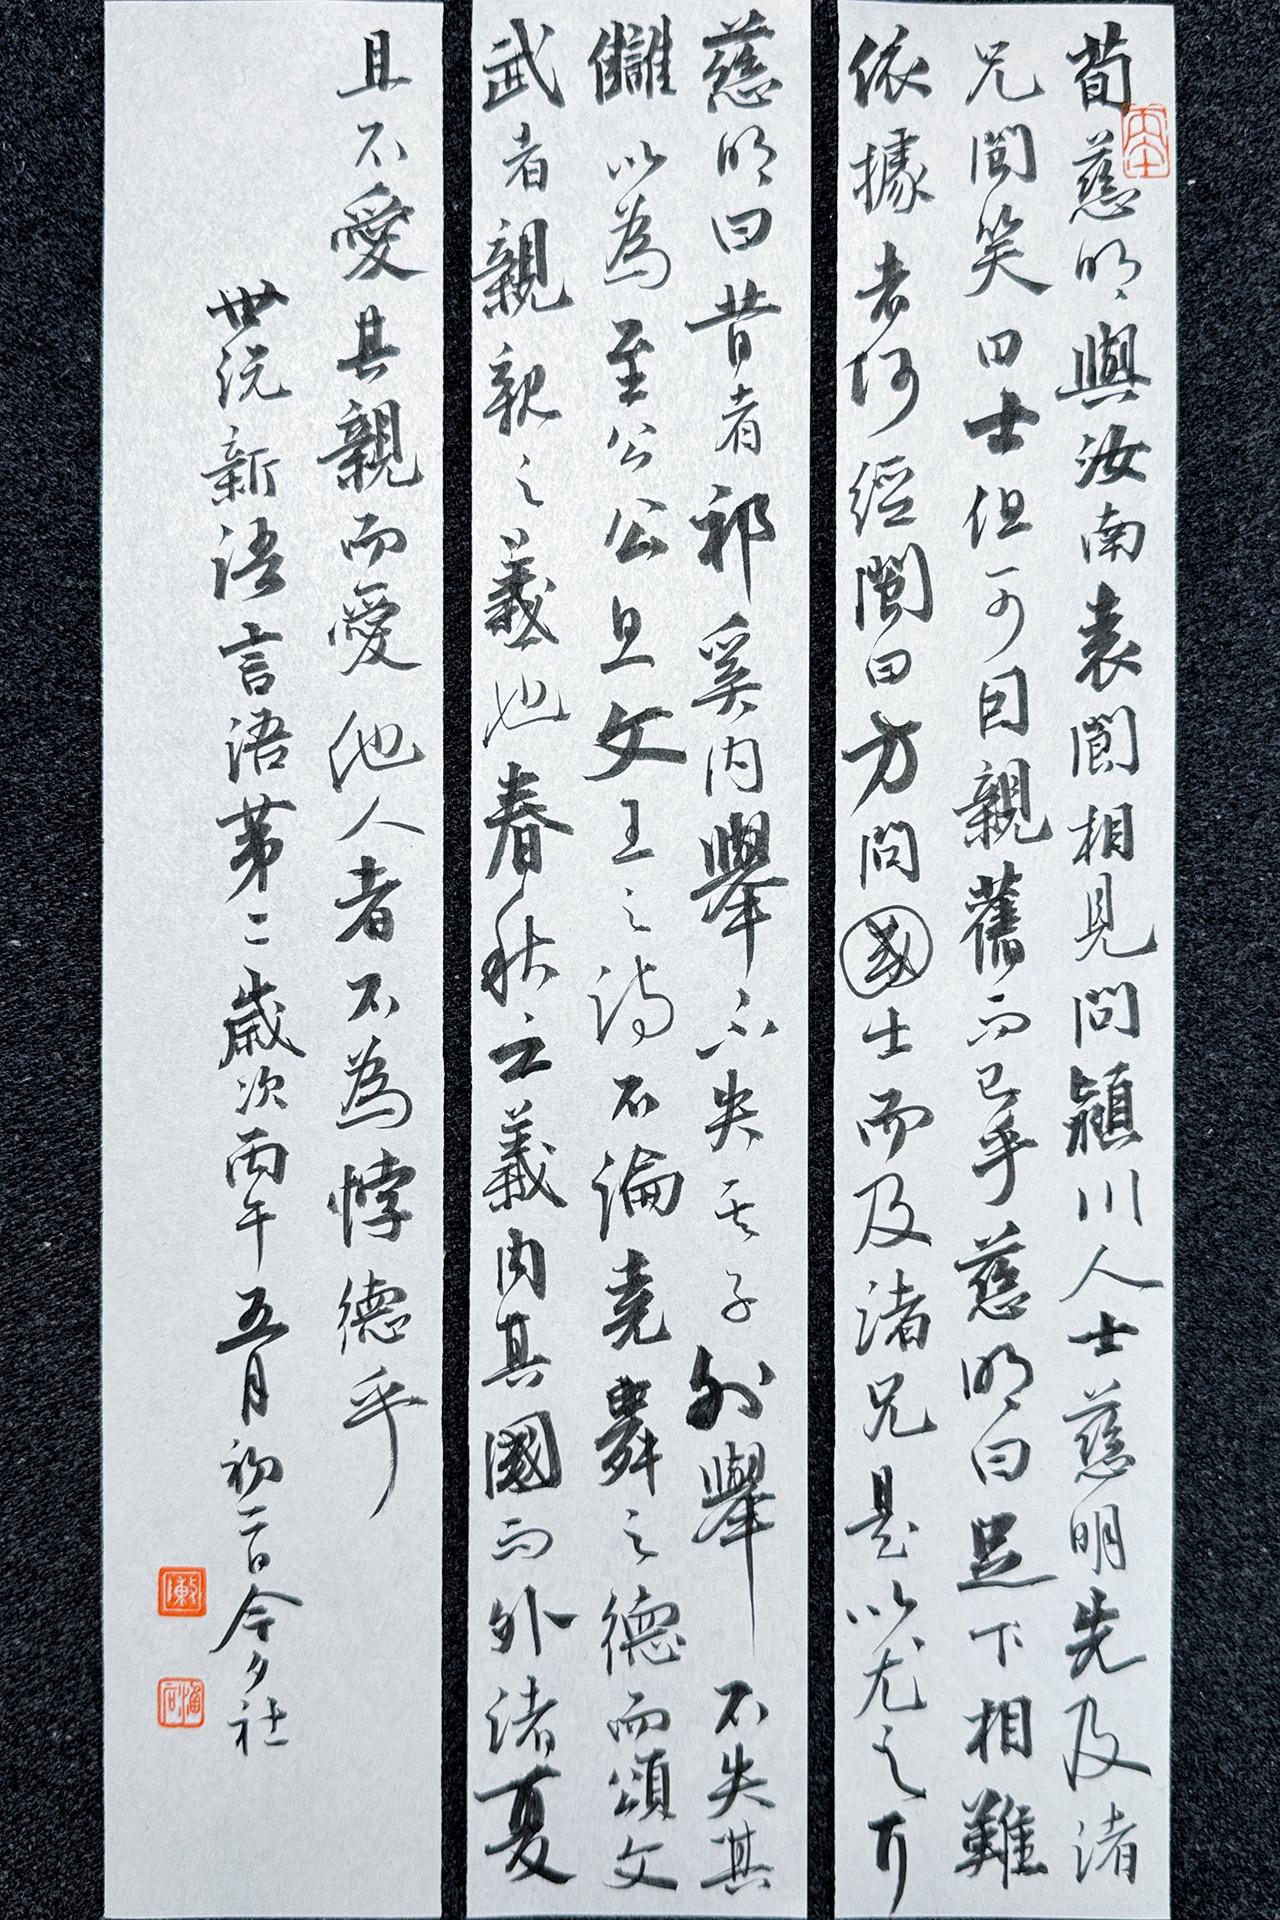 荀慈明與汝南袁閬相見問潁川人士慈明先及諸
兄閬笑曰士但可因親舊而已乎慈明曰足下相難
依據者何經閬曰方問國士而及諸兄是以尤之耳
慈明曰昔者祁奚內舉不失其子外舉不失其
讎以為至公公旦文王之詩不論堯舜之德而頌文
武者親親之義也春秋之義內其國而外諸夏
且不愛其親而愛他人者不為悖德乎
世說新語言語第二歲次丙午五月初一日今夕社